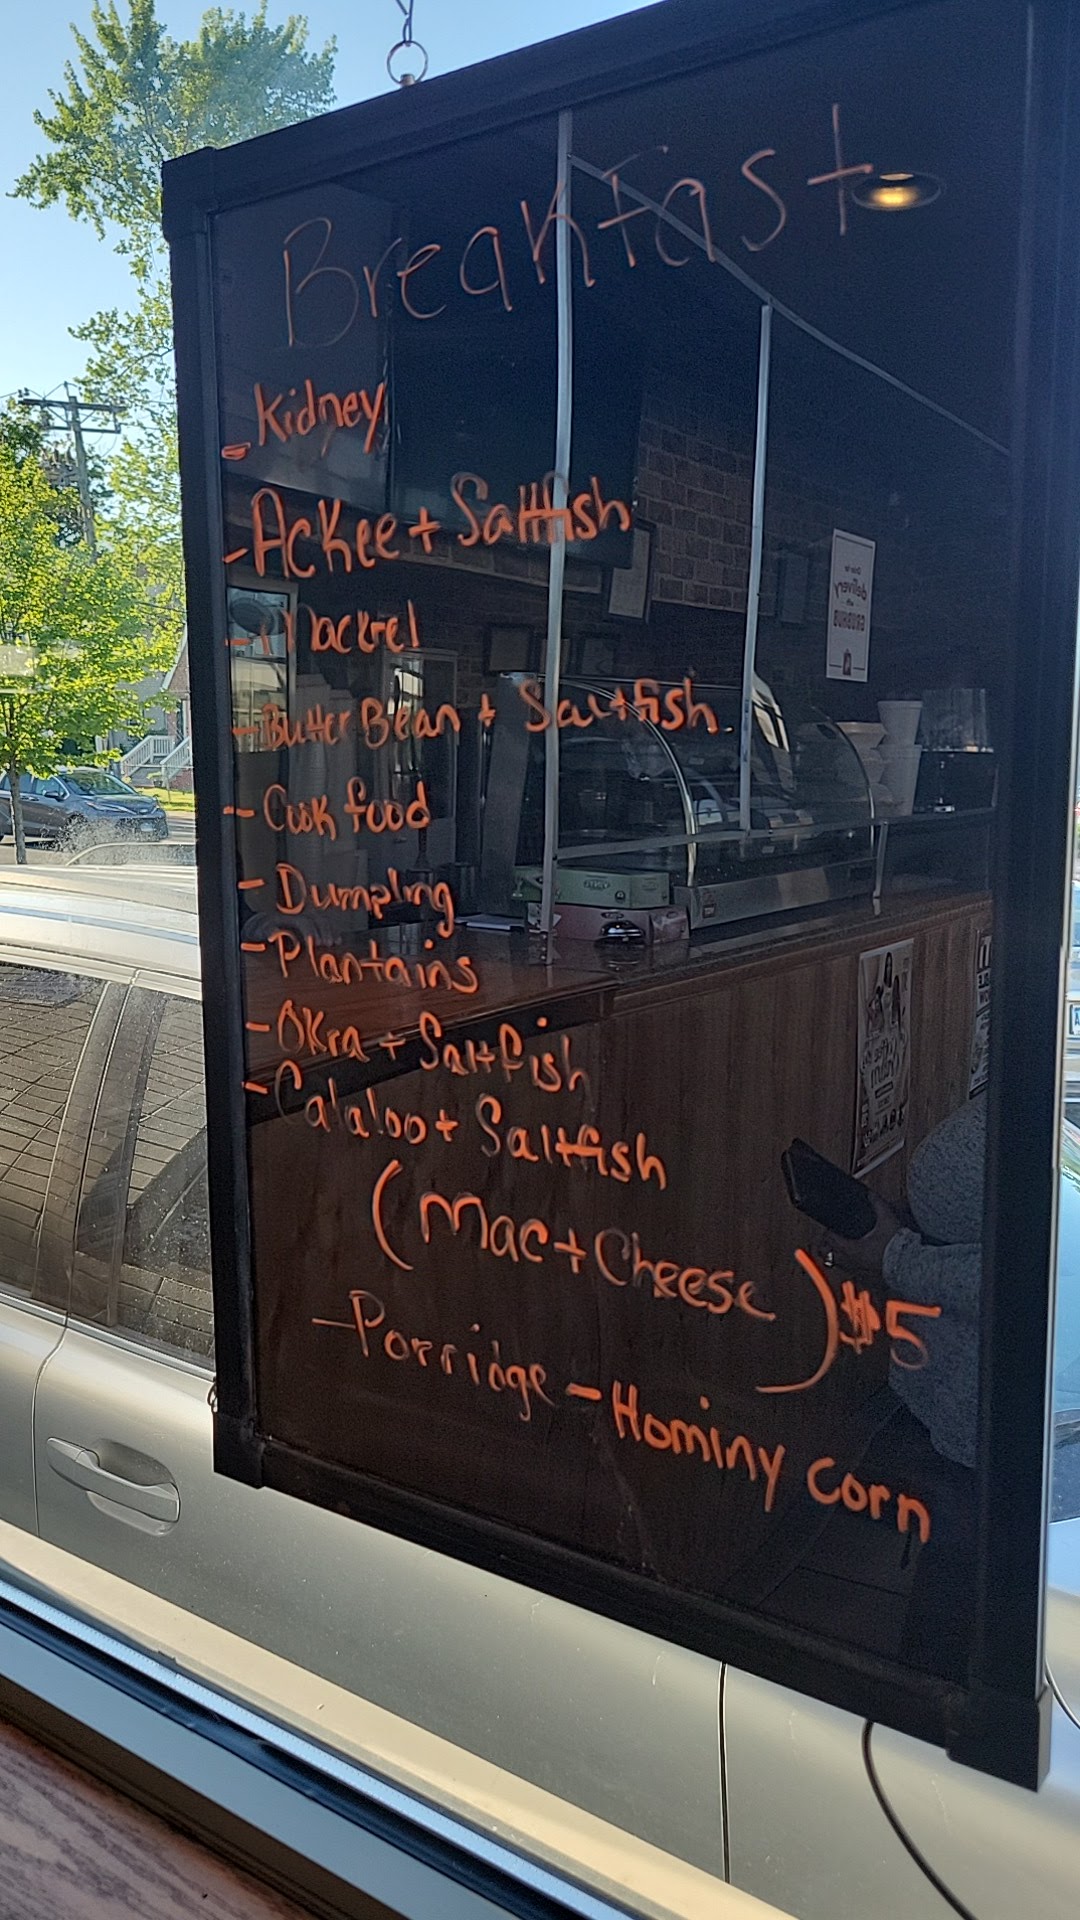 Breakfast
- Kidney
- Ackee + Saltfish
- Mackrel
- Butter Bean + Saltfish
- Cook food
- Dumpling
- Plantains
- Okra + Saltfish
- Calaloo + Saltfish
(Mac + Cheese) $5
- Porridge - Hominy corn
Order for
delivery
with
GRUBHUB